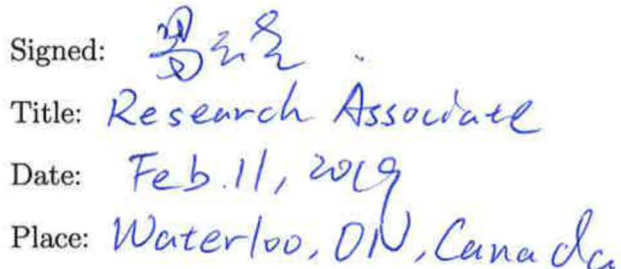 Signed:
Title: Research Associate
Date: Feb.11, 2019
Place: Waterloo, ON, Canada